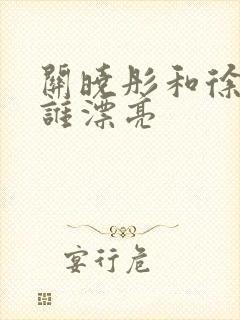 關曉彤和徐
誰漂亮
宴行危